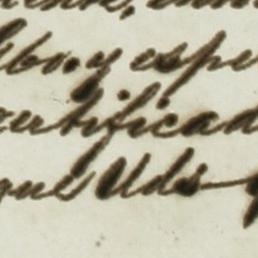 lbo. y espe
certificad
que Uds